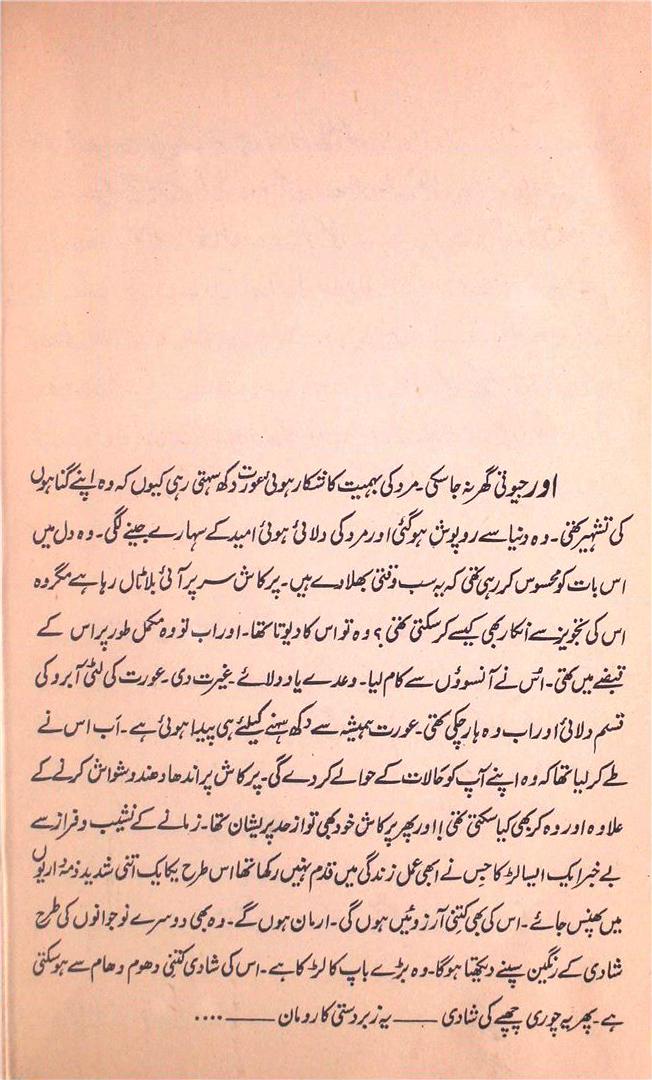 اور جیوتی گھر نہ جا سکی۔ مرد کی بہمیت کا شکار ہوئی عورت دکھ سہتی رہی کیوں کہ وہ اپنے گناہوں
کی تشہیر تھی۔ وہ دنیا سے روپوش ہو گئی اور مرد کی دلائی ہوئی امید کے سہارے جینے لگی۔ وہ دل میں
اس بات کو محسوس کر رہی تھی کہ یہ سب وقتی بھلاوے ہیں۔ پرکاش سر پر آئی بلا ٹال رہا ہے مگر وہ
اس کی تجویز سے انکار بھی کیسے کر سکتی تھی؟ وہ تو اس کا دیوتا تھا۔ اور اب تو وہ مکمل طور پر اس کے
قبضے میں تھی۔ اس نے آنسوؤں سے کام لیا۔ وعدے یاد دلائے۔ غیرت دی۔ عورت کی لٹی آبرو کی
قسم دلائی اور اب وہ ہار چکی تھی۔ عورت ہمیشہ سے دکھ سہنے کیلئے ہی پیدا ہوئی ہے۔ اب اس نے
طے کر لیا تھا کہ وہ اپنے آپ کو حالات کے حوالے کر دے گی۔ پرکاش پر اندھا دھند وشواش کرنے کے
علاوہ اور وہ کر بھی کیا سکتی تھی! اور پھر پرکاش خود بھی تو ازحد پریشان تھا۔ زمانے کے نشیب و فراز سے
بے خبر ایک ایسا لڑکا جس نے ابھی عمل زندگی میں قدم نہیں رکھا تھا اس طرح یکایک اتنی شدید ذمہ داریوں
میں پھنس جائے۔ اس کی بھی کتنی آرزوئیں ہوں گی۔ ارمان ہوں گے۔ وہ بھی دوسرے نوجوانوں کی طرح
شادی کے رنگین سپنے دیکھتا ہوگا۔ وہ بڑے باپ کا لڑکا ہے۔ اس کی شادی کتنی دھوم دھام سے ہو سکتی
ہے۔ پھر یہ چوری چھپے کی شادی ——— یہ زبردستی کا رومان ——— ....